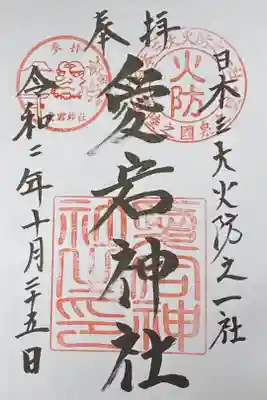 日本三大火防之一社
奉拝
愛宕神社
令和二年十月二十五日
火防
参拝
愛宕神
社之印